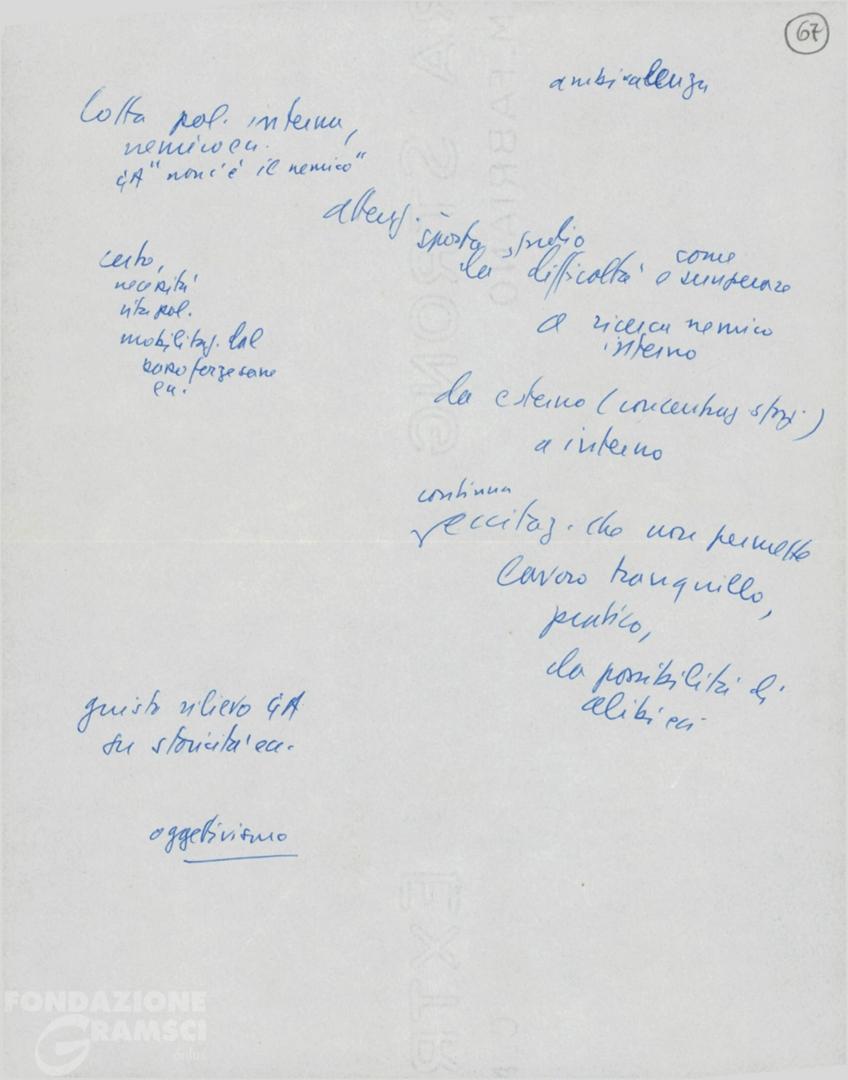 67
ambivalenza
lotta pol. interna,
nemico ecc.
GA "non c'è il nemico"
attenz.
sposta studio
da difficoltà e come superare
a ricerca nemico
interno
certo,
necessità
vita pol.
mobilitaz. dal
ecc.
da esterno (concentraz. sforzi)
a interno
continua
eccitaz. che non permette
lavoro tranquillo,
pratico,
da possibilità di
alibi ecc.
giusto rilievo GA
su storicità ecc.
oggettivismo
EXTRA STRONG
M-FABRIANO
FONDAZIONE
GRAMSCI
onlus